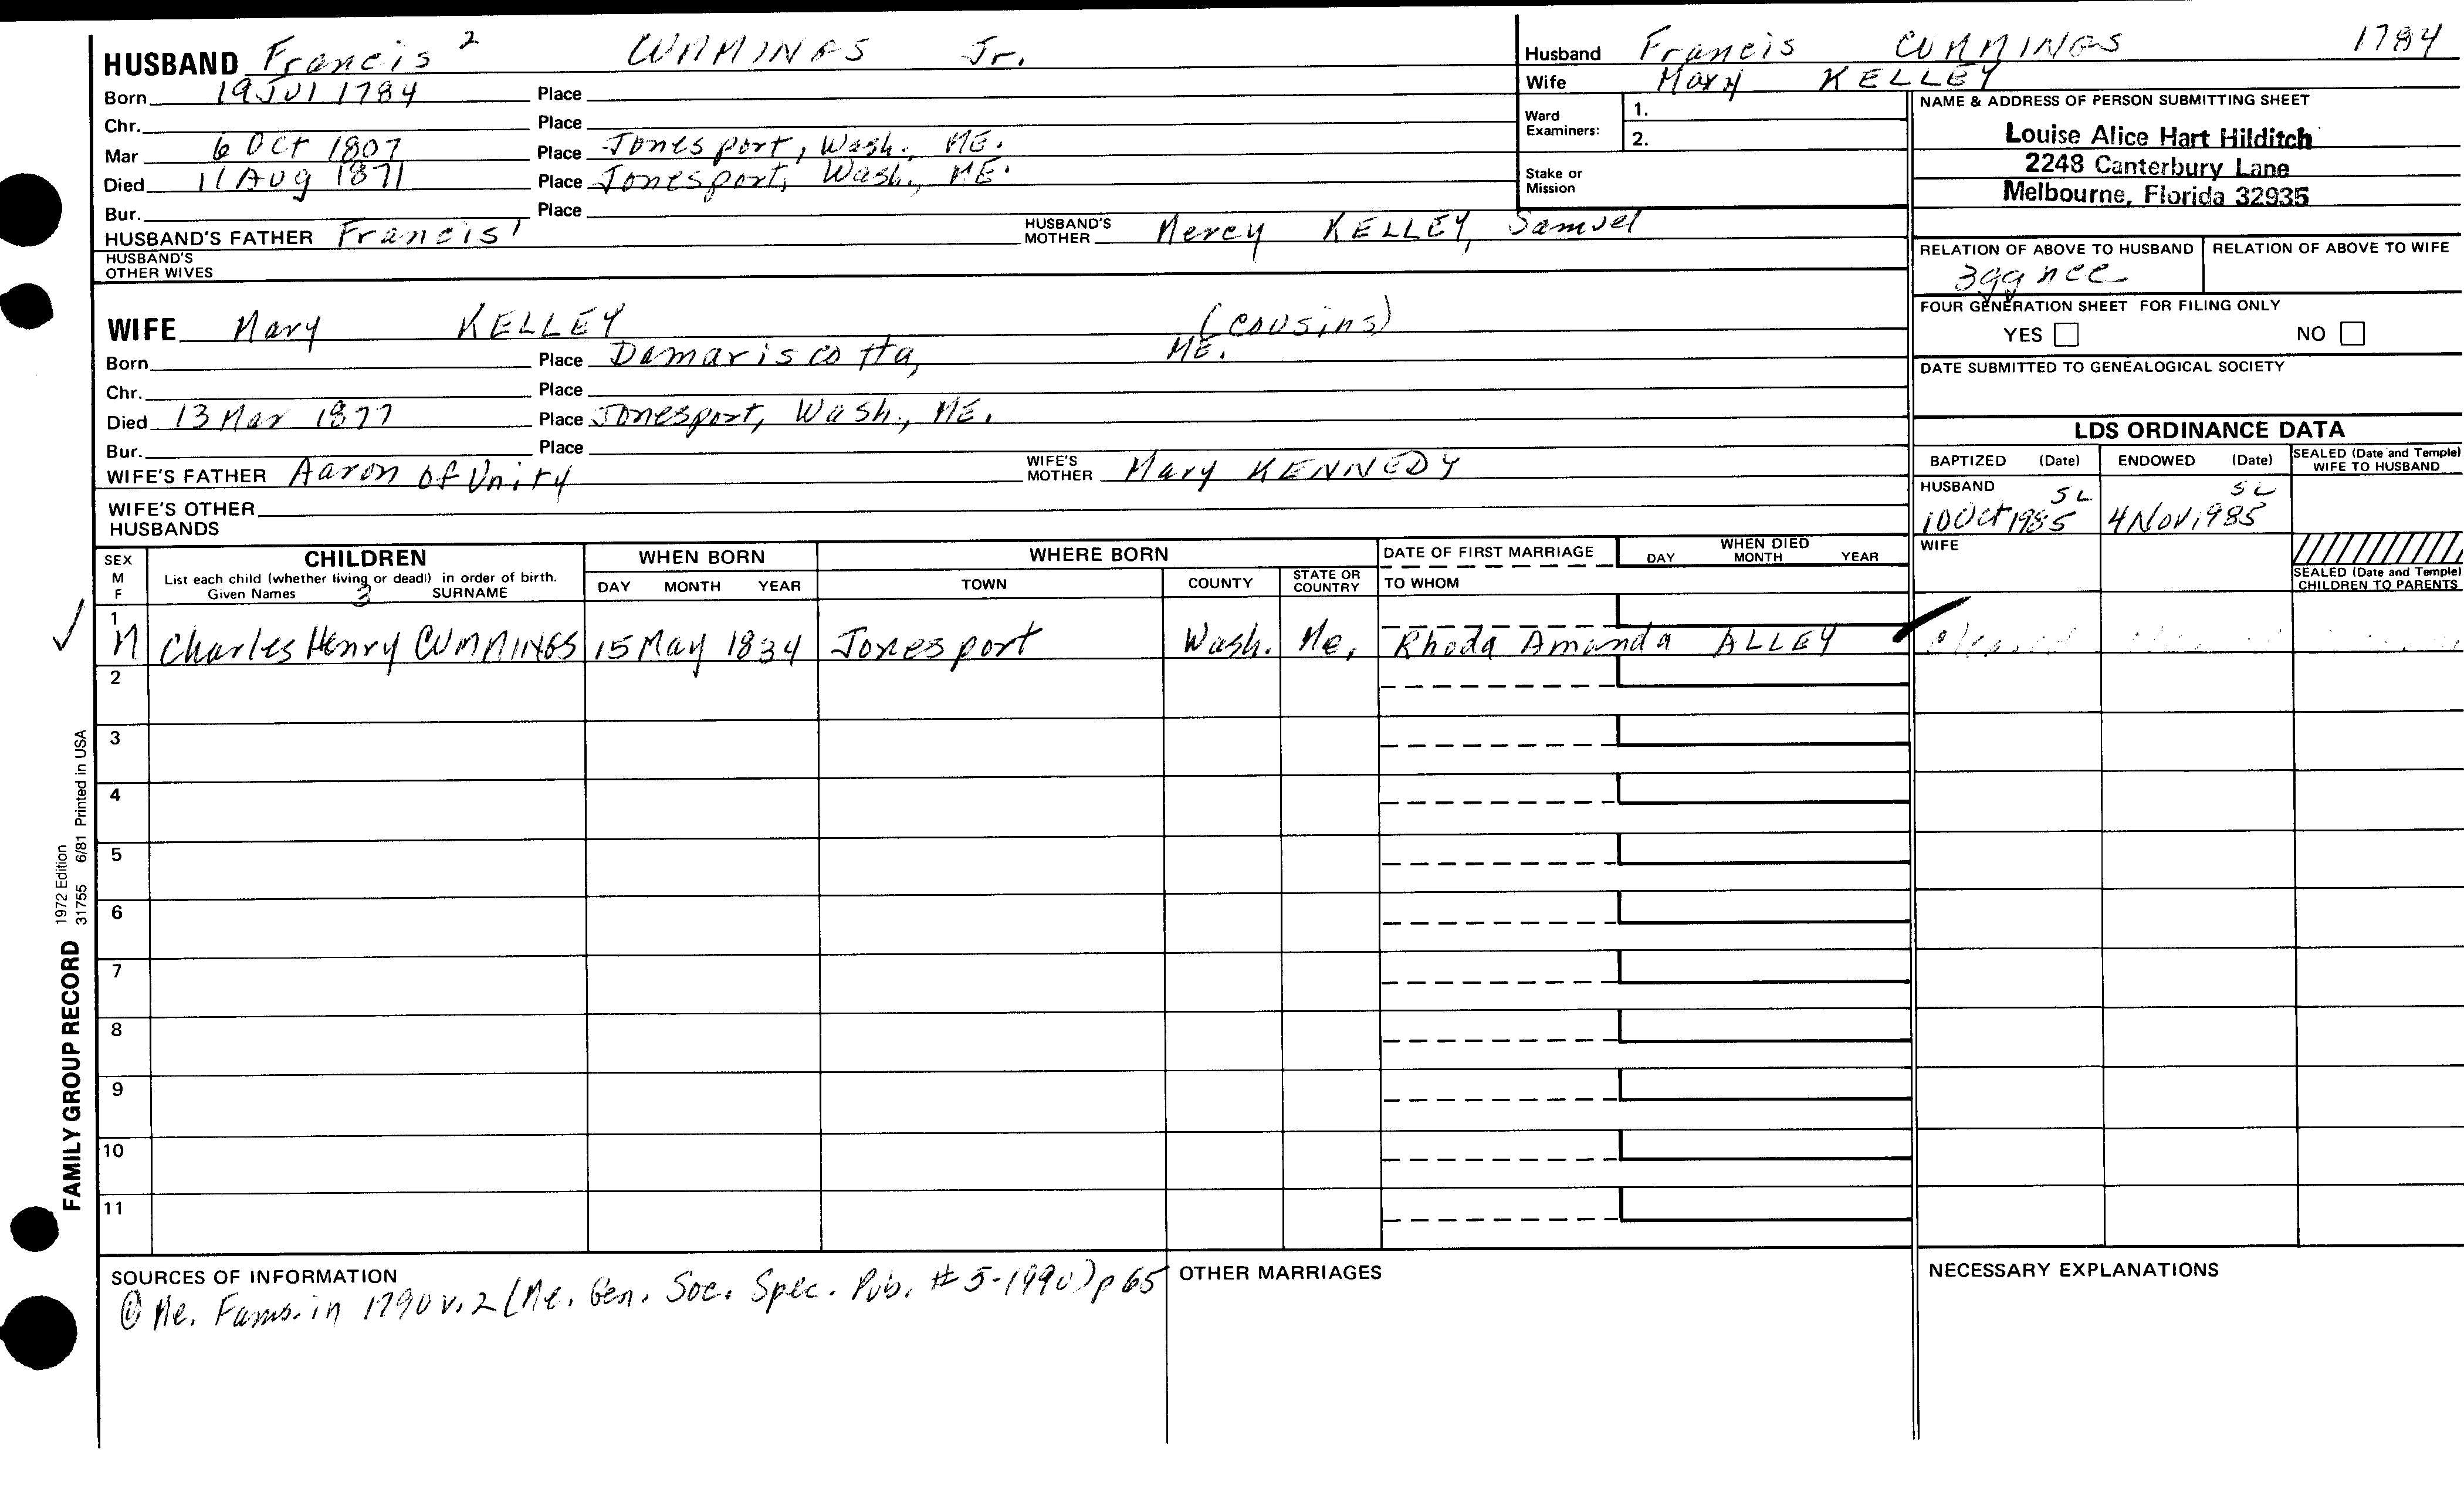 HUSBAND Francis 2 CUMMINGS Jr.
Born 19 Jul 1784 Place
Chr. Place
Mar 6 Oct 1807 Place Jonesport, Wash. ME.
Died 11 Aug 1871 Place Jonesport, Wash., ME.
Bur. Place
HUSBAND'S FATHER Francis 1 HUSBAND'S MOTHER Mercy KELLEY, Samuel
HUSBAND'S OTHER WIVES
Husband Francis CUMMINGS 1784
Wife Mary KELLEY
Ward Examiners: 1.
2.
Stake or Mission
NAME & ADDRESS OF PERSON SUBMITTING SHEET
Louise Alice Hart Hilditch
2248 Canterbury Lane
Melbourne, Florida 32935
RELATION OF ABOVE TO HUSBAND RELATION OF ABOVE TO WIFE
3gg nce
FOUR GENERATION SHEET FOR FILING ONLY
YES NO
DATE SUBMITTED TO GENEALOGICAL SOCIETY
WIFE Mary KELLEY (cousins)
Born Place Damariscotta, ME.
Chr. Place
Died 13 Mar 1877 Place Jonesport, Wash., ME.
Bur. Place
WIFE'S FATHER Aaron of Unity WIFE'S MOTHER Mary KENNEDY
WIFE'S OTHER HUSBANDS
LDS ORDINANCE DATA
BAPTIZED (Date) ENDOWED (Date) SEALED (Date and Temple) WIFE TO HUSBAND
HUSBAND SL SL
10 Oct 1985 4 Nov 1985
WIFE
SEALED (Date and Temple) CHILDREN TO PARENTS
SEX M F CHILDREN WHEN BORN WHERE BORN DATE OF FIRST MARRIAGE WHEN DIED
List each child (whether living or dead) in order of birth. DAY MONTH YEAR TOWN COUNTY STATE OR COUNTRY TO WHOM DAY MONTH YEAR
Given Names 3 SURNAME
1 M Charles Henry CUMMINGS 15 May 1834 Jonesport Wash. Me. Rhoda Amanda ALLEY
2
3
4
5
6
7
8
9
10
11
FAMILY GROUP RECORD 1972 Edition
31755 6/81 Printed in USA
SOURCES OF INFORMATION
① Me. Fams. in 1790 v. 2 (Me. Gen. Soc. Spec. Pub. # 5-1990) p 65
OTHER MARRIAGES
NECESSARY EXPLANATIONS